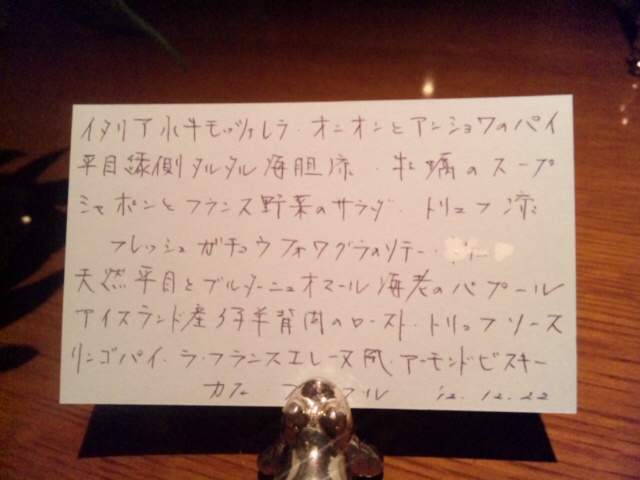 イタリア水牛モッツァレラ・オニオンとアンショワのパイ
平目縁側タルタル海胆添・牡蠣のスープ
シャポンとフランス野菜のサラダ・トリュフ添
フレッシュガチョウフォワグラのソテー
天然平目とブルターニュオマール海老のバプール
アイスランド産仔羊背肉のロースト・トリュフソース
リンゴパイ・ラ・フランスエレーヌ風・アーモンドビスキー
カフェ '12.12.22